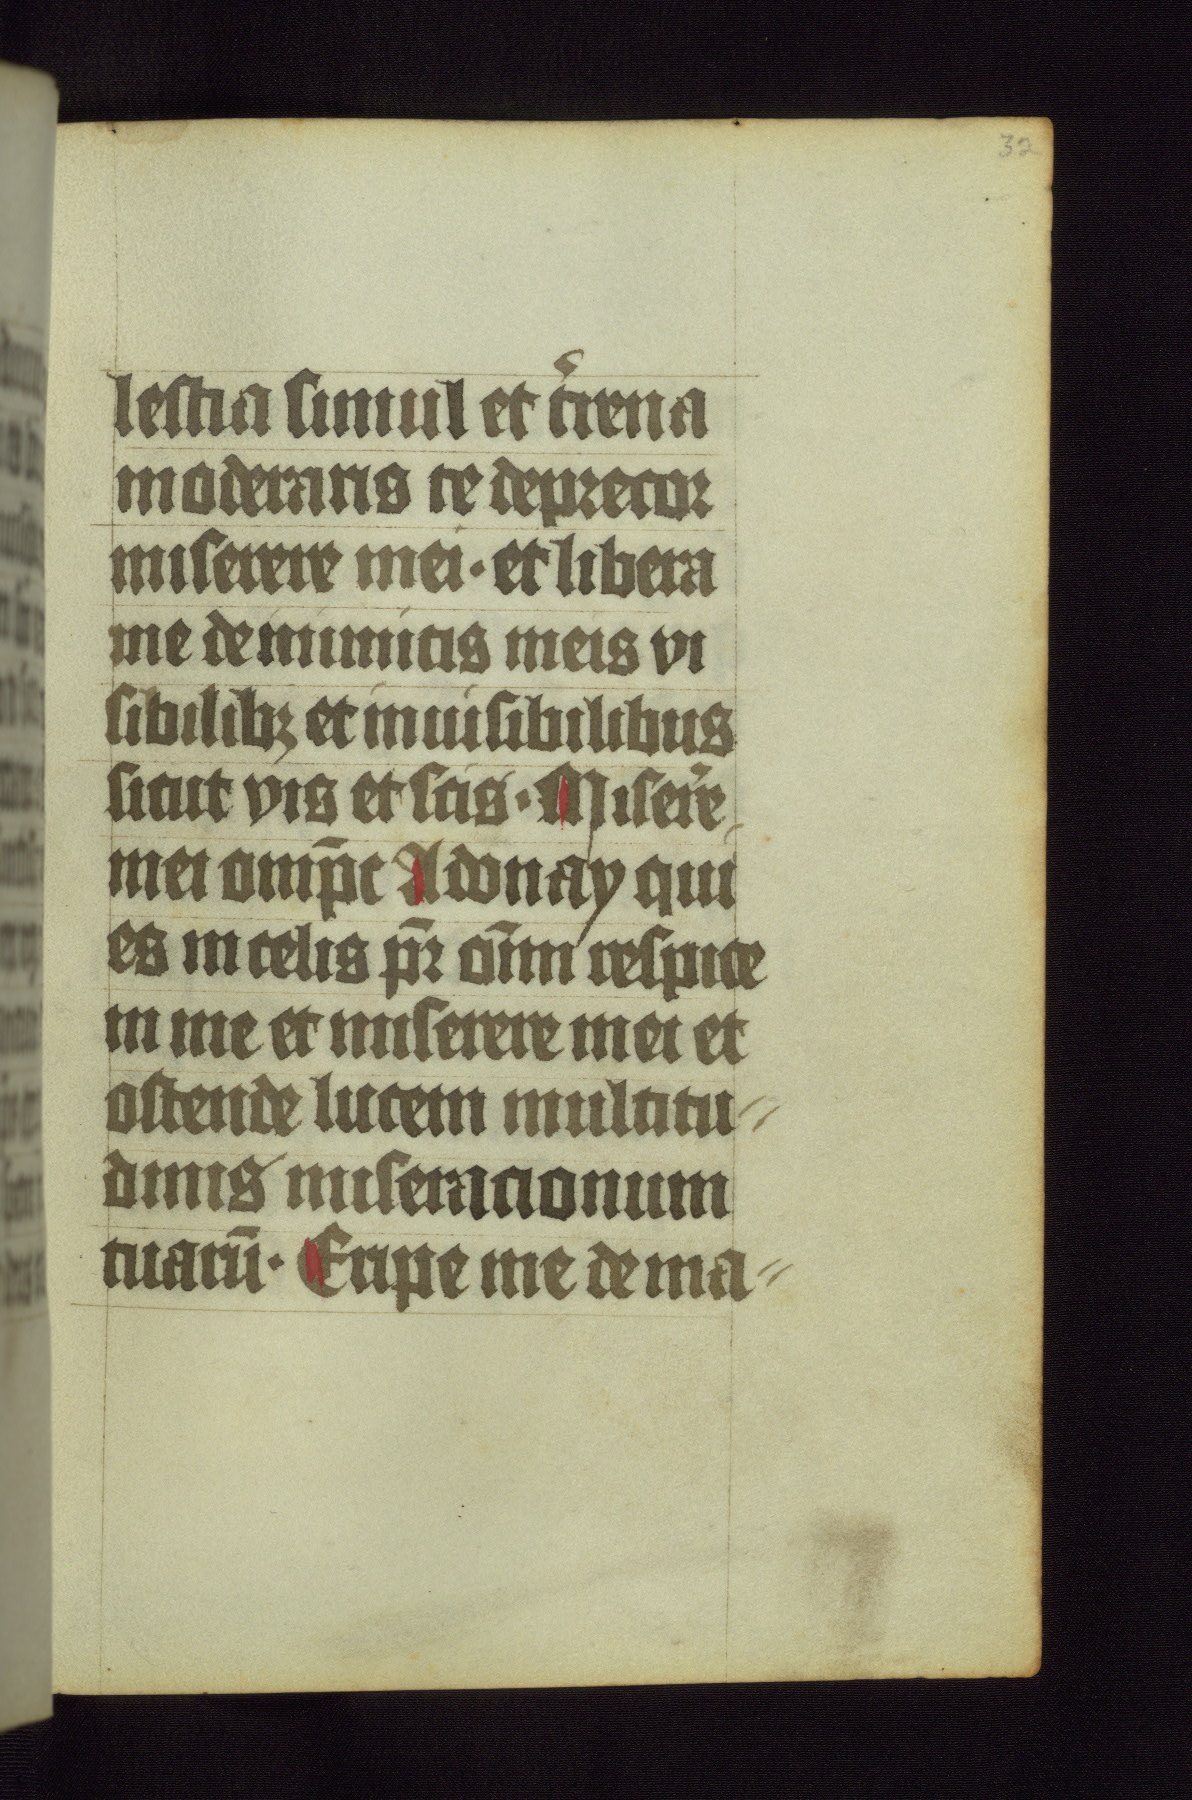 32
lestia simul et t̾rena
moderaris te deprecor
miserere mei · et libera
me de inimicis meis vi
sibilibꝫ et inuisibilibus
sicut vis et scis · Miser̾e
mei omp̄c Adonay qui
es in celis pr̄ om̄i respice
in me et miserere mei et
ostende lucem multitu⸗
dinis miseracionum
tuarū · Eripe me de ma⸗